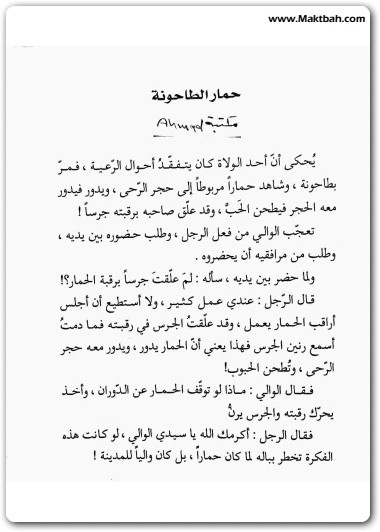 www.Maktbah.com
حمار الطاحونة
مكتبة Ahmed
يُحكى أنّ أحد الولاة كان يتفقّدُ أحوال الرّعية ، فمرّ
بطاحونة ، وشاهد حماراً مربوطاً إلى حجر الرّحى ، ويدور فيدور
معه الحجر فيطحن الحَبَّ ، وقد علّق صاحبه برقبته جرساً !
تعجّب الوالي من فعل الرجل ، وطلب حضوره بين يديه ،
وطلب من مرافقيه أن يحضروه .
ولما حضر بين يديه ، سأله : لمَ علّقتَ جرساً برقبة الحمار؟!
قال الرّجل : عندي عمل كثير ، ولا أستطيع أن أجلس
أراقب الحمار يعمل ، وقد علّقتُ الجرس في رقبته فما دمتُ
أسمع رنين الجرس فهذا يعني أنّ الحمار يدور ، ويدور معه حجر
الرّحى ، وتُطحن الحبوب!
فقال الوالي : ماذا لو توقّف الحمار عن الدّوران ، وأخذ
يحرّك رقبته والجرس يرنُّ
فقال الرجل : أكرمك الله يا سيدي الوالي ، لو كانت هذه
الفكرة تخطر بباله لما كان حماراً ، بل كان والياً للمدينة !